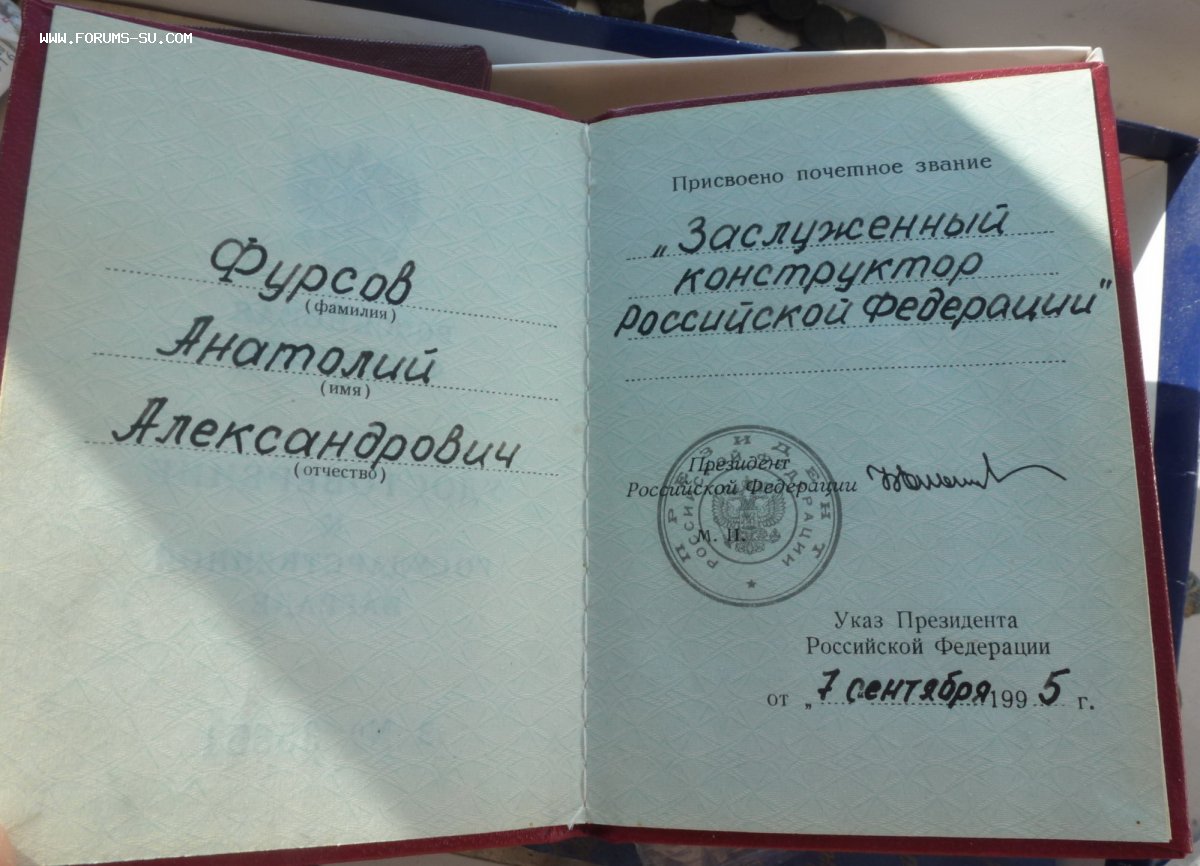 WWW.FORUMS-SU.COM
Фурсов
(фамилия)
Анатолий
(имя)
Александрович
(отчество)
Присвоено почетное звание
„Заслуженный
конструктор
Российской Федерации"
Президент
Российской Федерации
М. П.
ПРЕЗИДЕНТ
РОССИЙСКОЙ ФЕДЕРАЦИИ
Указ Президента
Российской Федерации
от „7 сентября 1995 г.